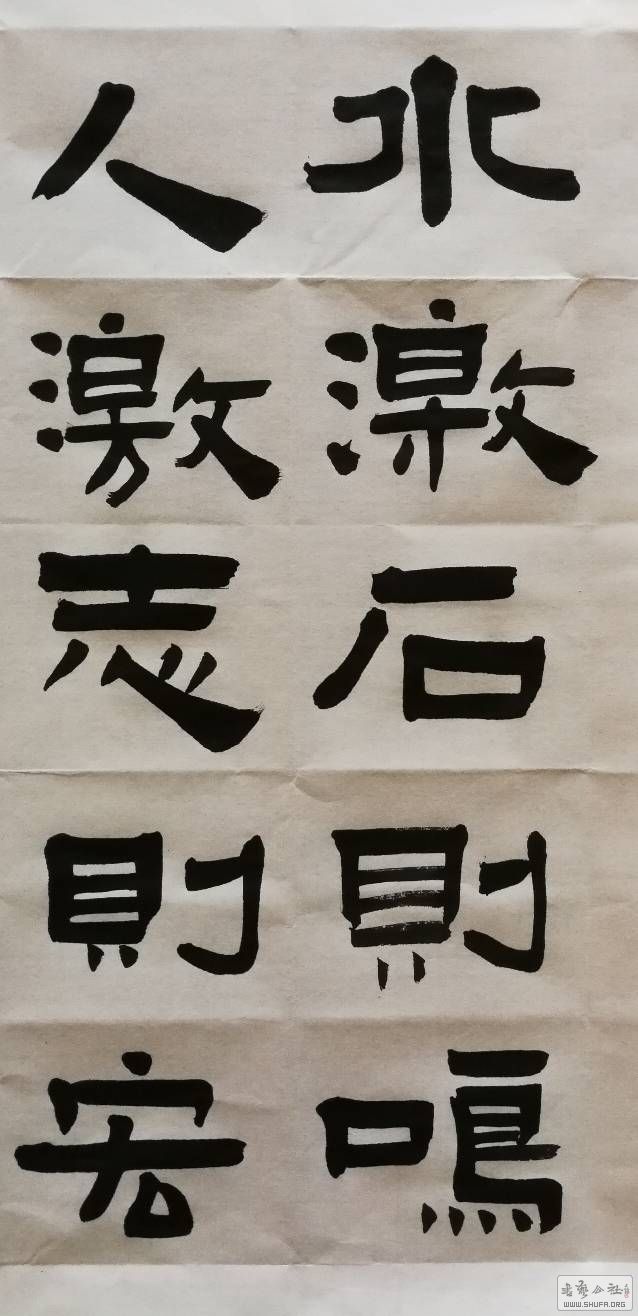 水激石則鳴
人激志則宏
书艺公社
WWW.SHUFA.ORG